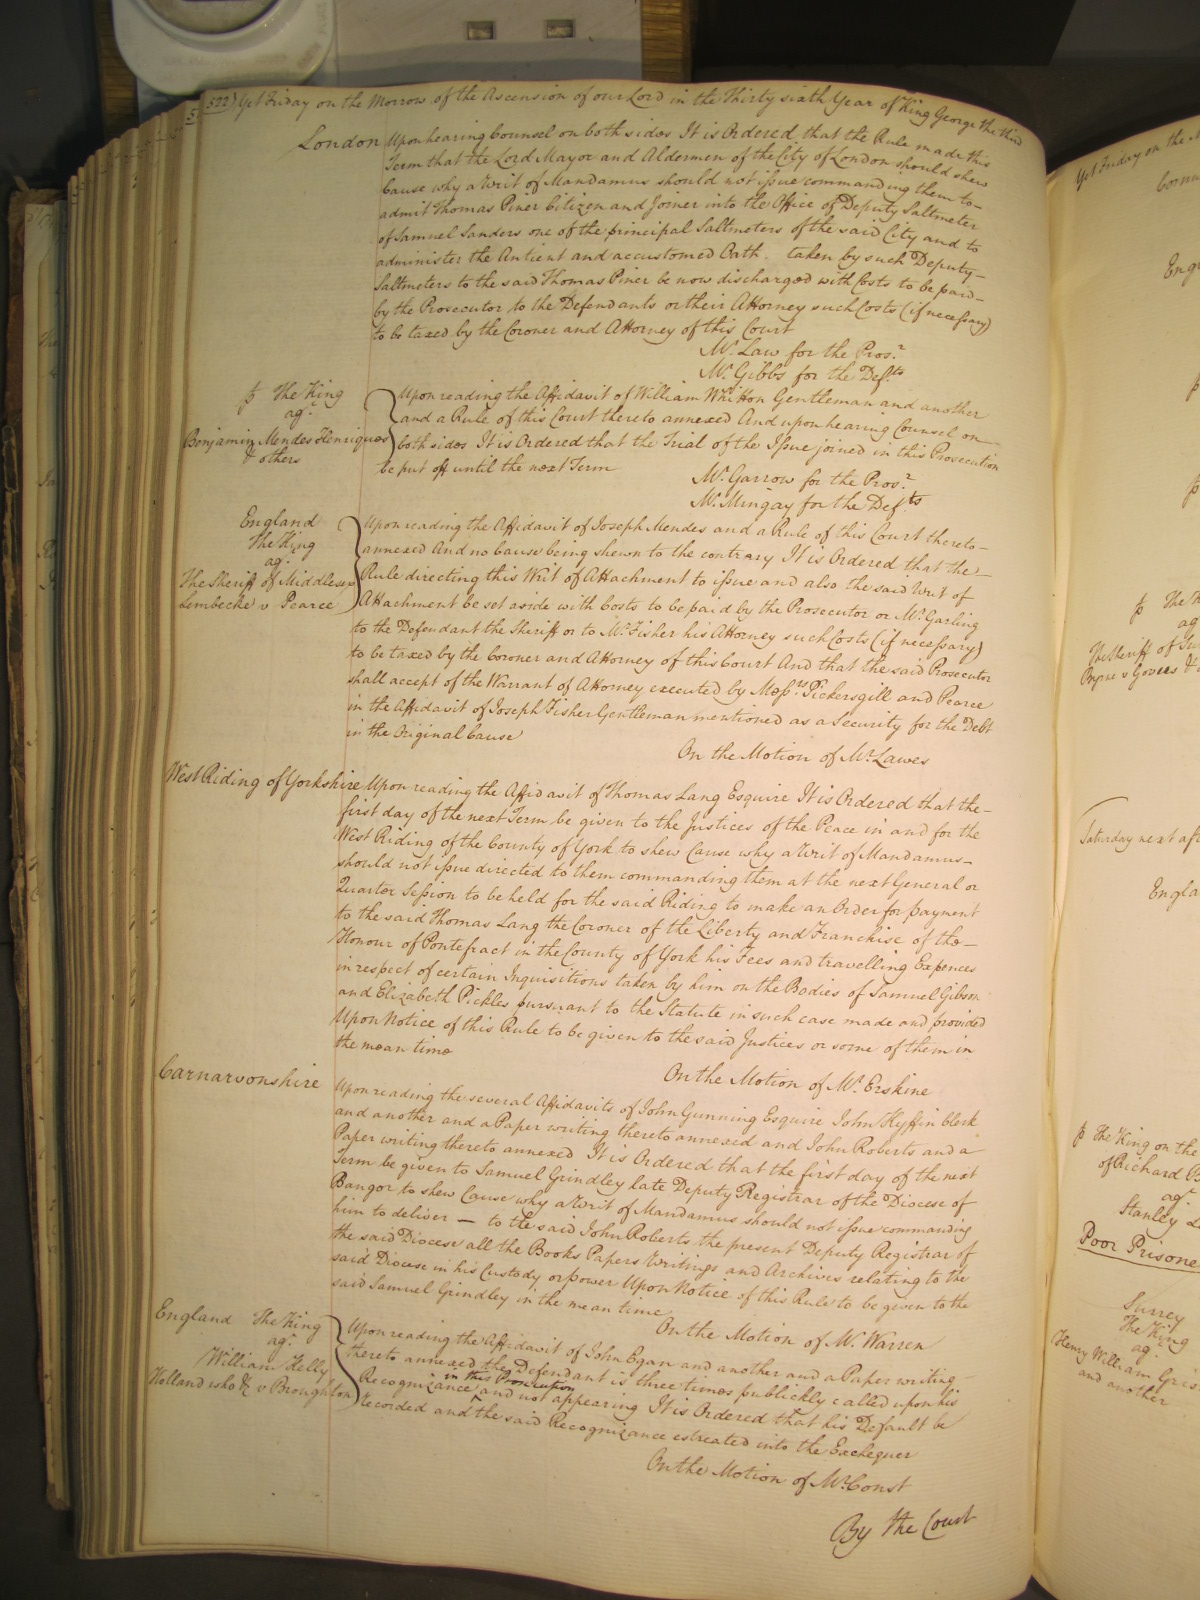 522) Yet Friday on the Morrow of the Ascension of our Lord in the Thirty sixth Year of King George the third
London Upon hearing Counsel on both sides It is Ordered that the Rule made this
Term that the Lord Mayor and Aldermen of the City of London should shew
Cause why a Writ of Mandamus should not issue commanding them to
admit Thomas Piner Citizen and Joiner into the Office of Deputy Saltmeter
of Samuel Sanders one of the principal Saltmeters of the said City and to
administer the Antient and accustomed Oath taken by such Deputy
Saltmeters to the said Thomas Piner be now discharged with Costs to be paid
by the Prosecutor to the Defendants or their Attorney such Costs (if necessary)
to be taxed by the Coroner and Attorney of this Court
Mr. Law for the Prosr.
Mr. Gibbs for the Defts
þ The King
agt.
Benjamin Mendes Henriques
& others
Upon reading the Affidavit of William Whitton Gentleman and another
and a Rule of this Court thereto annexed And upon hearing Counsel on
both sides It is Ordered that the Trial of the Issue joined in this Prosecution
be put off until the next Term
Mr. Garrow for the Prosr.
Mr. Mingay for the Defts
England
The King
agt.
The Sheriff of Middlesex
Lembecke v Pearce
Upon reading the Affidavit of Joseph Mendes and a Rule of this Court thereto
annexed And no Cause being shewn to the contrary It is Ordered that the
Rule directing this Writ of Attachment to issue and also the said Writ of
Attachment be set aside with Costs to be paid by the Prosecutor or Mr. Garling
to the Defendant the Sheriff or to Mr. Fisher his Attorney such Costs (if necessary)
to be taxed by the Coroner and Attorney of this Court And that the said Prosecutor
shall accept of the Warrant of Attorney executed by Messrs Pickersgill and Pearce
in the Affidavit of Joseph Fisher Gentleman mentioned as a Security for the Debt
in the Original Cause
On the Motion of Mr. Lawes
West Riding of Yorkshire Upon reading the Affidavit of Thomas Lang Esquire It is Ordered that the
first day of the next Term be given to the Justices of the Peace in and for the
West Riding of the County of York to shew Cause why a Writ of Mandamus
should not issue directed to them commanding them at the next General or
Quarter Session to be held for the said Riding to make an Order for payment
to the said Thomas Lang the Coroner of the Liberty and Franchise of the
Honour of Pontefract in the County of York his Fees and travelling Expences
in respect of certain Inquisitions taken by him on the Bodies of Samuel Gibson
and Elizabeth Pickles pursuant to the Statute in such case made and provided
Upon Notice of this Rule to be given to the said Justices or some of them in
the mean time
On the Motion of Mr. Erskine
Carnarvonshire
Upon reading the several Affidavits of John Gunning Esquire John Kyffin Clerk
and another and a Paper writing thereto annexed and John Roberts and a
Paper writing thereto annexed It is Ordered that the first day of the next
Term be given to Samuel Grindley late Deputy Registrar of the Diocese of
Bangor to shew Cause why a Writ of Mandamus should not issue commanding
him to deliver – to the said John Roberts the present Deputy Registrar of
the said Diocese all the Books Papers Writings and Archives relating to the
said Diocese in his Custody or power Upon Notice of this Rule to be given to the
said Samuel Grindley in the mean time
On the Motion of Mr. Warren
England The King
agt.
William Kelly
Holland who &c v Broughton
Upon reading the Affidavit of John Egan and another and a Paper writing
thereto annexed the Defendant is three times publickly called upon his
Recognizance in this Prosecution and not appearing It is Ordered that his Default be
recorded and the said Recognizance estreated into the Exchequer
On the Motion of Mr. Const
By the Court
Yet Friday on the
þ
þ
þ The
ag
The Sheriff of
Byrne v Govers
Saturday next
Engla
þ The King on the
of Richard
agt.
Stanley
Poor Prisone
Surrey
The King
agt.
Henry William
and another